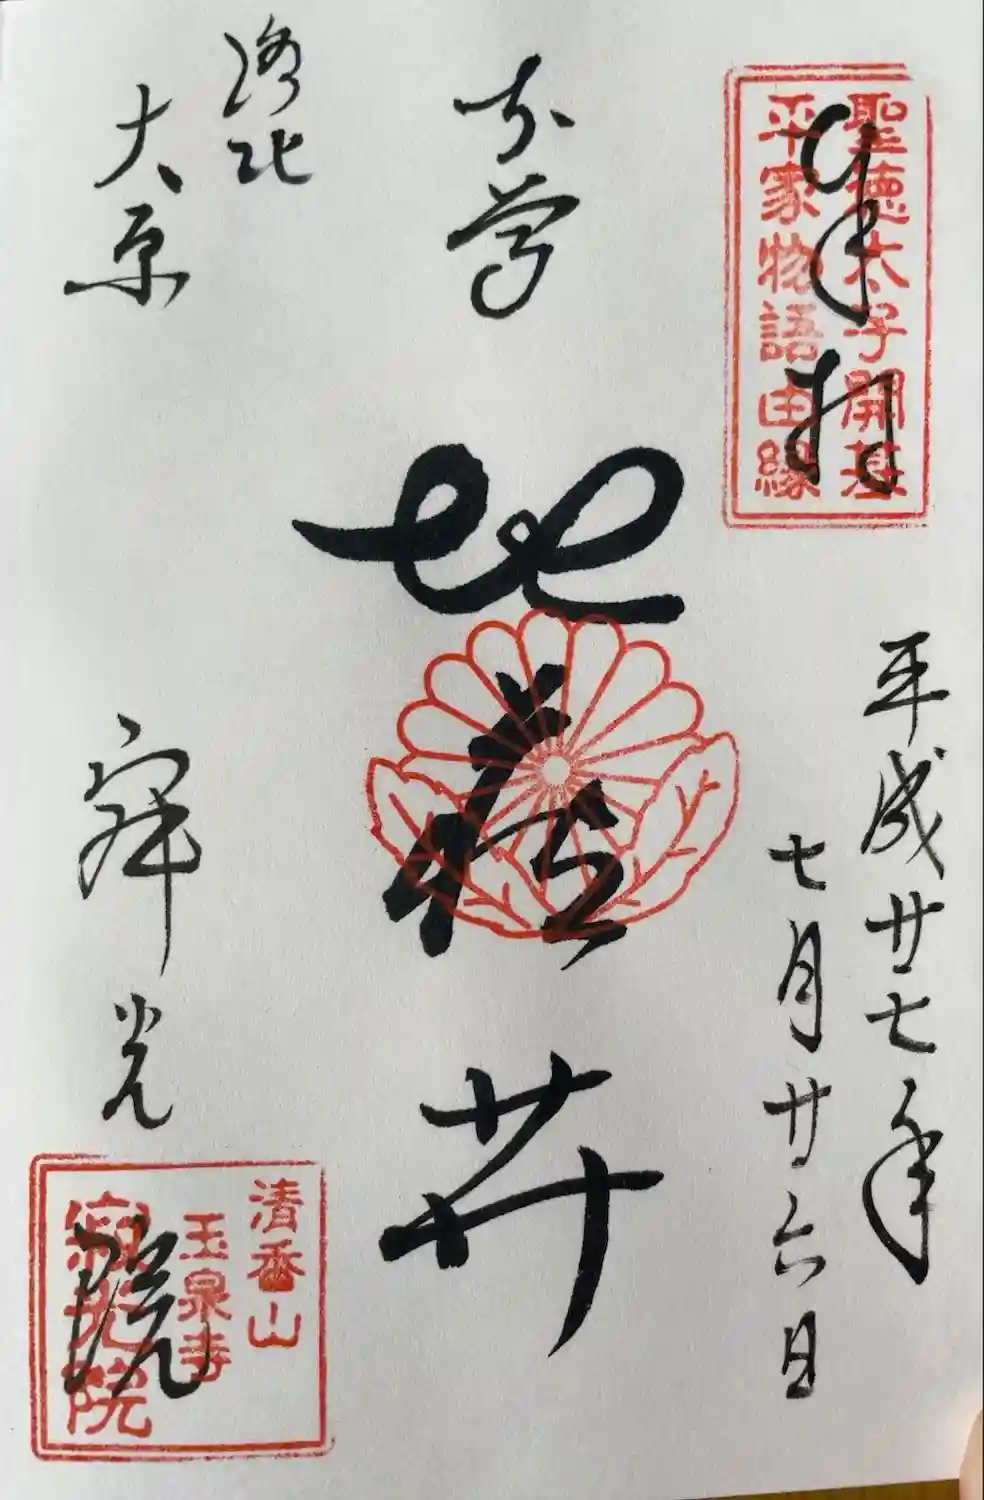 聖徳太子開基
平家物語由緣
奉拝
平成廿七年
七月廿六日
地蔵
洛北
大原
寂光
院
清香山
玉泉寺
寂光院